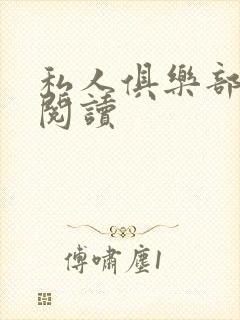 私人俱樂部
閱讀
傅嘯塵1